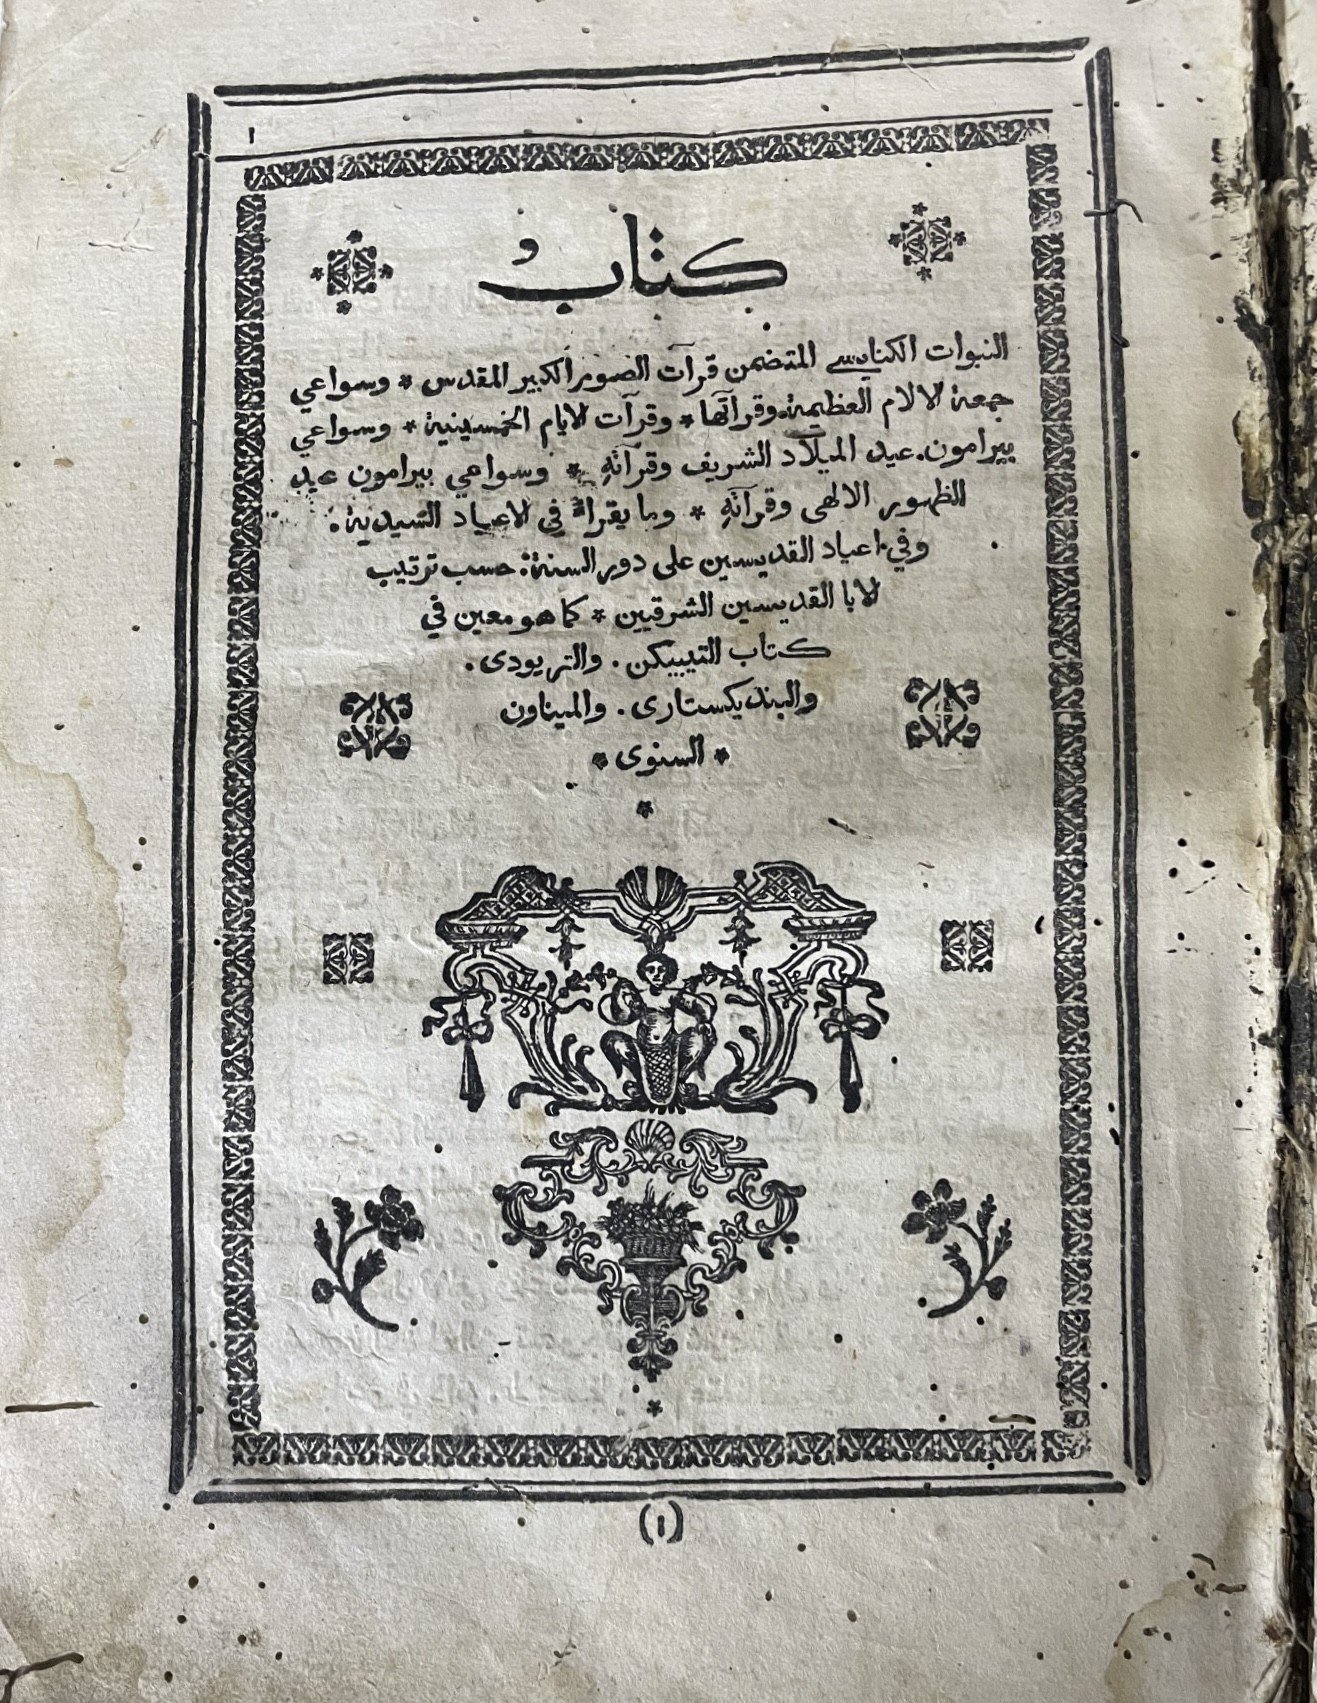 ١
كتابُ
النبوات الكنايسي المتضمن قرآت الصوم الكبير المقدس * وسواعي
جمعة الالام العظيمة. وقرآتها * وقرآت الايام الخمسينية * وسواعي
بيرامون. عيد الميلاد الشريف وقرآتهِ * وسواعي بيرامون عيد
الظهور الالهى وقرآتهِ * وما يقراهُ في الاعياد السّيدية.
وفي اعياد القديسين على دور السنة. حسب ترتيب
الابا القديسين الشرقيين * كما هو معين في
كتاب التيبيكن. والتريودى.
والبنديكستارى. والميناون
* السنوى *
(١)